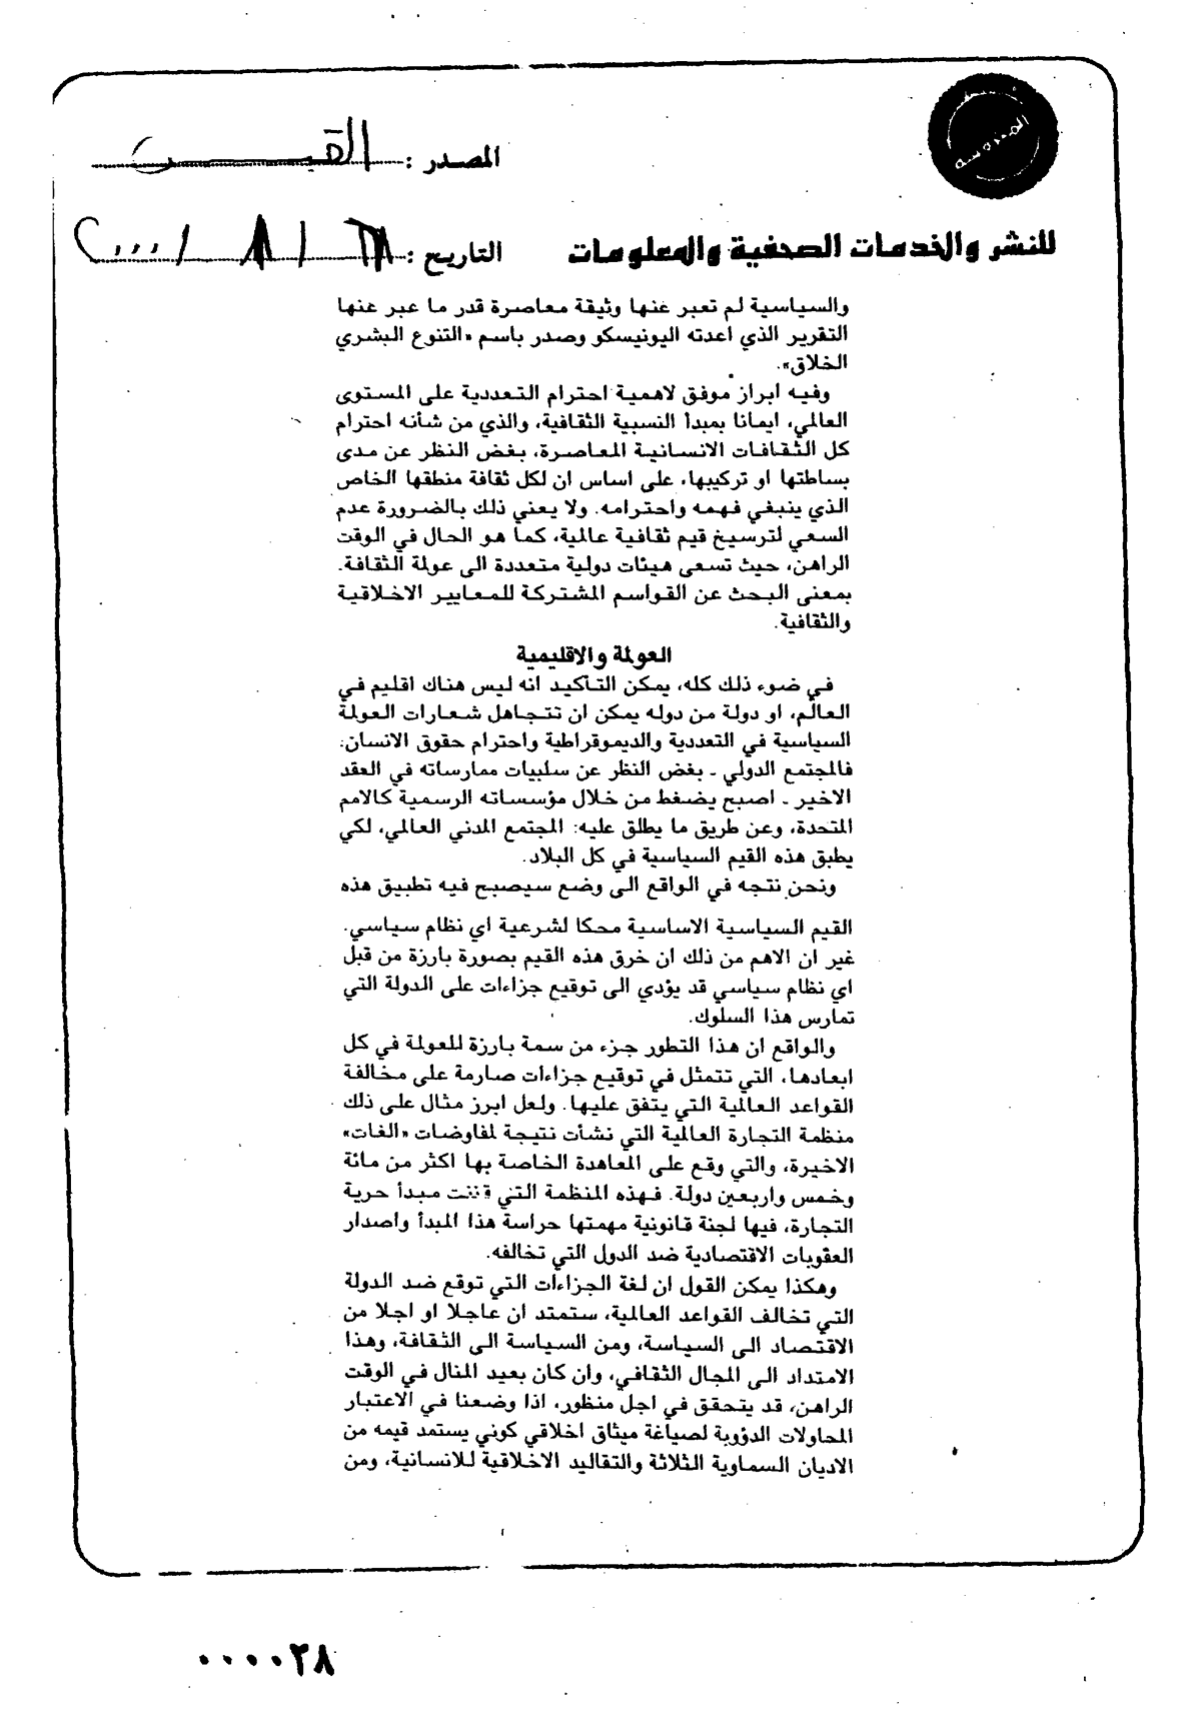 المصدر :
للنشر والخدمات الصحفية والمعلومات
التاريخ :
والسياسية لم تعبر عنها وثيقة معاصرة قدر ما عبر عنها
التقرير الذي اعدته اليونيسكو وصدر باسم «التنوع البشري
الخلاق».
وفيه ابراز موفق لاهمية احترام التعددية على المستوى
العالمي، ايمانا بمبدأ النسبية الثقافية، والذي من شأنه احترام
كل الثقافات الانسانية المعاصرة، بغض النظر عن مدى
بساطتها او تركيبها، على اساس ان لكل ثقافة منطقها الخاص
الذي ينبغي فهمه واحترامه. ولا يعني ذلك بالضرورة عدم
السعي لترسيخ قيم ثقافية عالمية، كما هو الحال في الوقت
الراهن، حيث تسعى هيئات دولية متعددة الى عولمة الثقافة.
بمعنى البحث عن القواسم المشتركة للمعايير الاخلاقية
والثقافية.
العولمة والاقليمية
في ضوء ذلك كله، يمكن التأكيد انه ليس هناك اقليم في
العالم، او دولة من دوله يمكن ان تتجاهل شعارات العولمة
السياسية في التعددية والديموقراطية واحترام حقوق الانسان:
فالمجتمع الدولي ـ بغض النظر عن سلبيات ممارساته في العقد
الاخير ـ اصبح يضغط من خلال مؤسساته الرسمية كالامم
المتحدة، وعن طريق ما يطلق عليه: المجتمع المدني العالمي، لكي
يطبق هذه القيم السياسية في كل البلاد.
ونحن نتجه في الواقع الى وضع سيصبح فيه تطبيق هذه
القيم السياسية الاساسية محكا لشرعية اي نظام سياسي.
غير ان الاهم من ذلك ان خرق هذه القيم بصورة بارزة من قبل
اي نظام سياسي قد يؤدي الى توقيع جزاءات على الدولة التي
تمارس هذا السلوك.
والواقع ان هذا التطور جزء من سمة بارزة للعولمة في كل
ابعادها، التي تتمثل في توقيع جزاءات صارمة على مخالفة
القواعد العالمية التي يتفق عليها. ولعل ابرز مثال على ذلك
منظمة التجارة العالمية التي نشأت نتيجة لمفاوضات «الغات»
الاخيرة، والتي وقع على المعاهدة الخاصة بها اكثر من مائة
وخمس واربعين دولة. فهذه المنظمة التي قننت مبدأ حرية
التجارة، فيها لجنة قانونية مهمتها حراسة هذا المبدأ واصدار
العقوبات الاقتصادية ضد الدول التي تخالفه.
وهكذا يمكن القول ان لغة الجزاءات التي توقع ضد الدولة
التي تخالف القواعد العالمية، ستمتد ان عاجلا او اجلا من
الاقتصاد الى السياسة، ومن السياسة الى الثقافة، وهذا
الامتداد الى المجال الثقافي، وان كان بعيد المنال في الوقت
الراهن، قد يتحقق في اجل منظور، اذا وضعنا في الاعتبار
المحاولات الدؤوبة لصياغة ميثاق اخلاقي كوني يستمد قيمه من
الاديان السماوية الثلاثة والتقاليد الاخلاقية للانسانية، ومن
٠٠٠٠٢٨